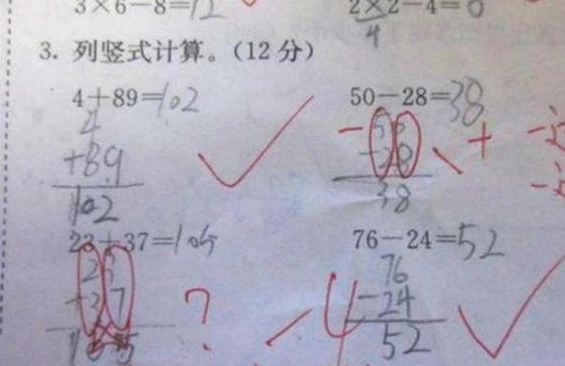 3×6－8=12
2×2－4=0
4
3. 列竖式计算。(12 分)
4＋89=102
50－28=38
4
+89
102
－28
38
23＋37=105
76－24=52
23
+37
105
?
76
－24
52
－4